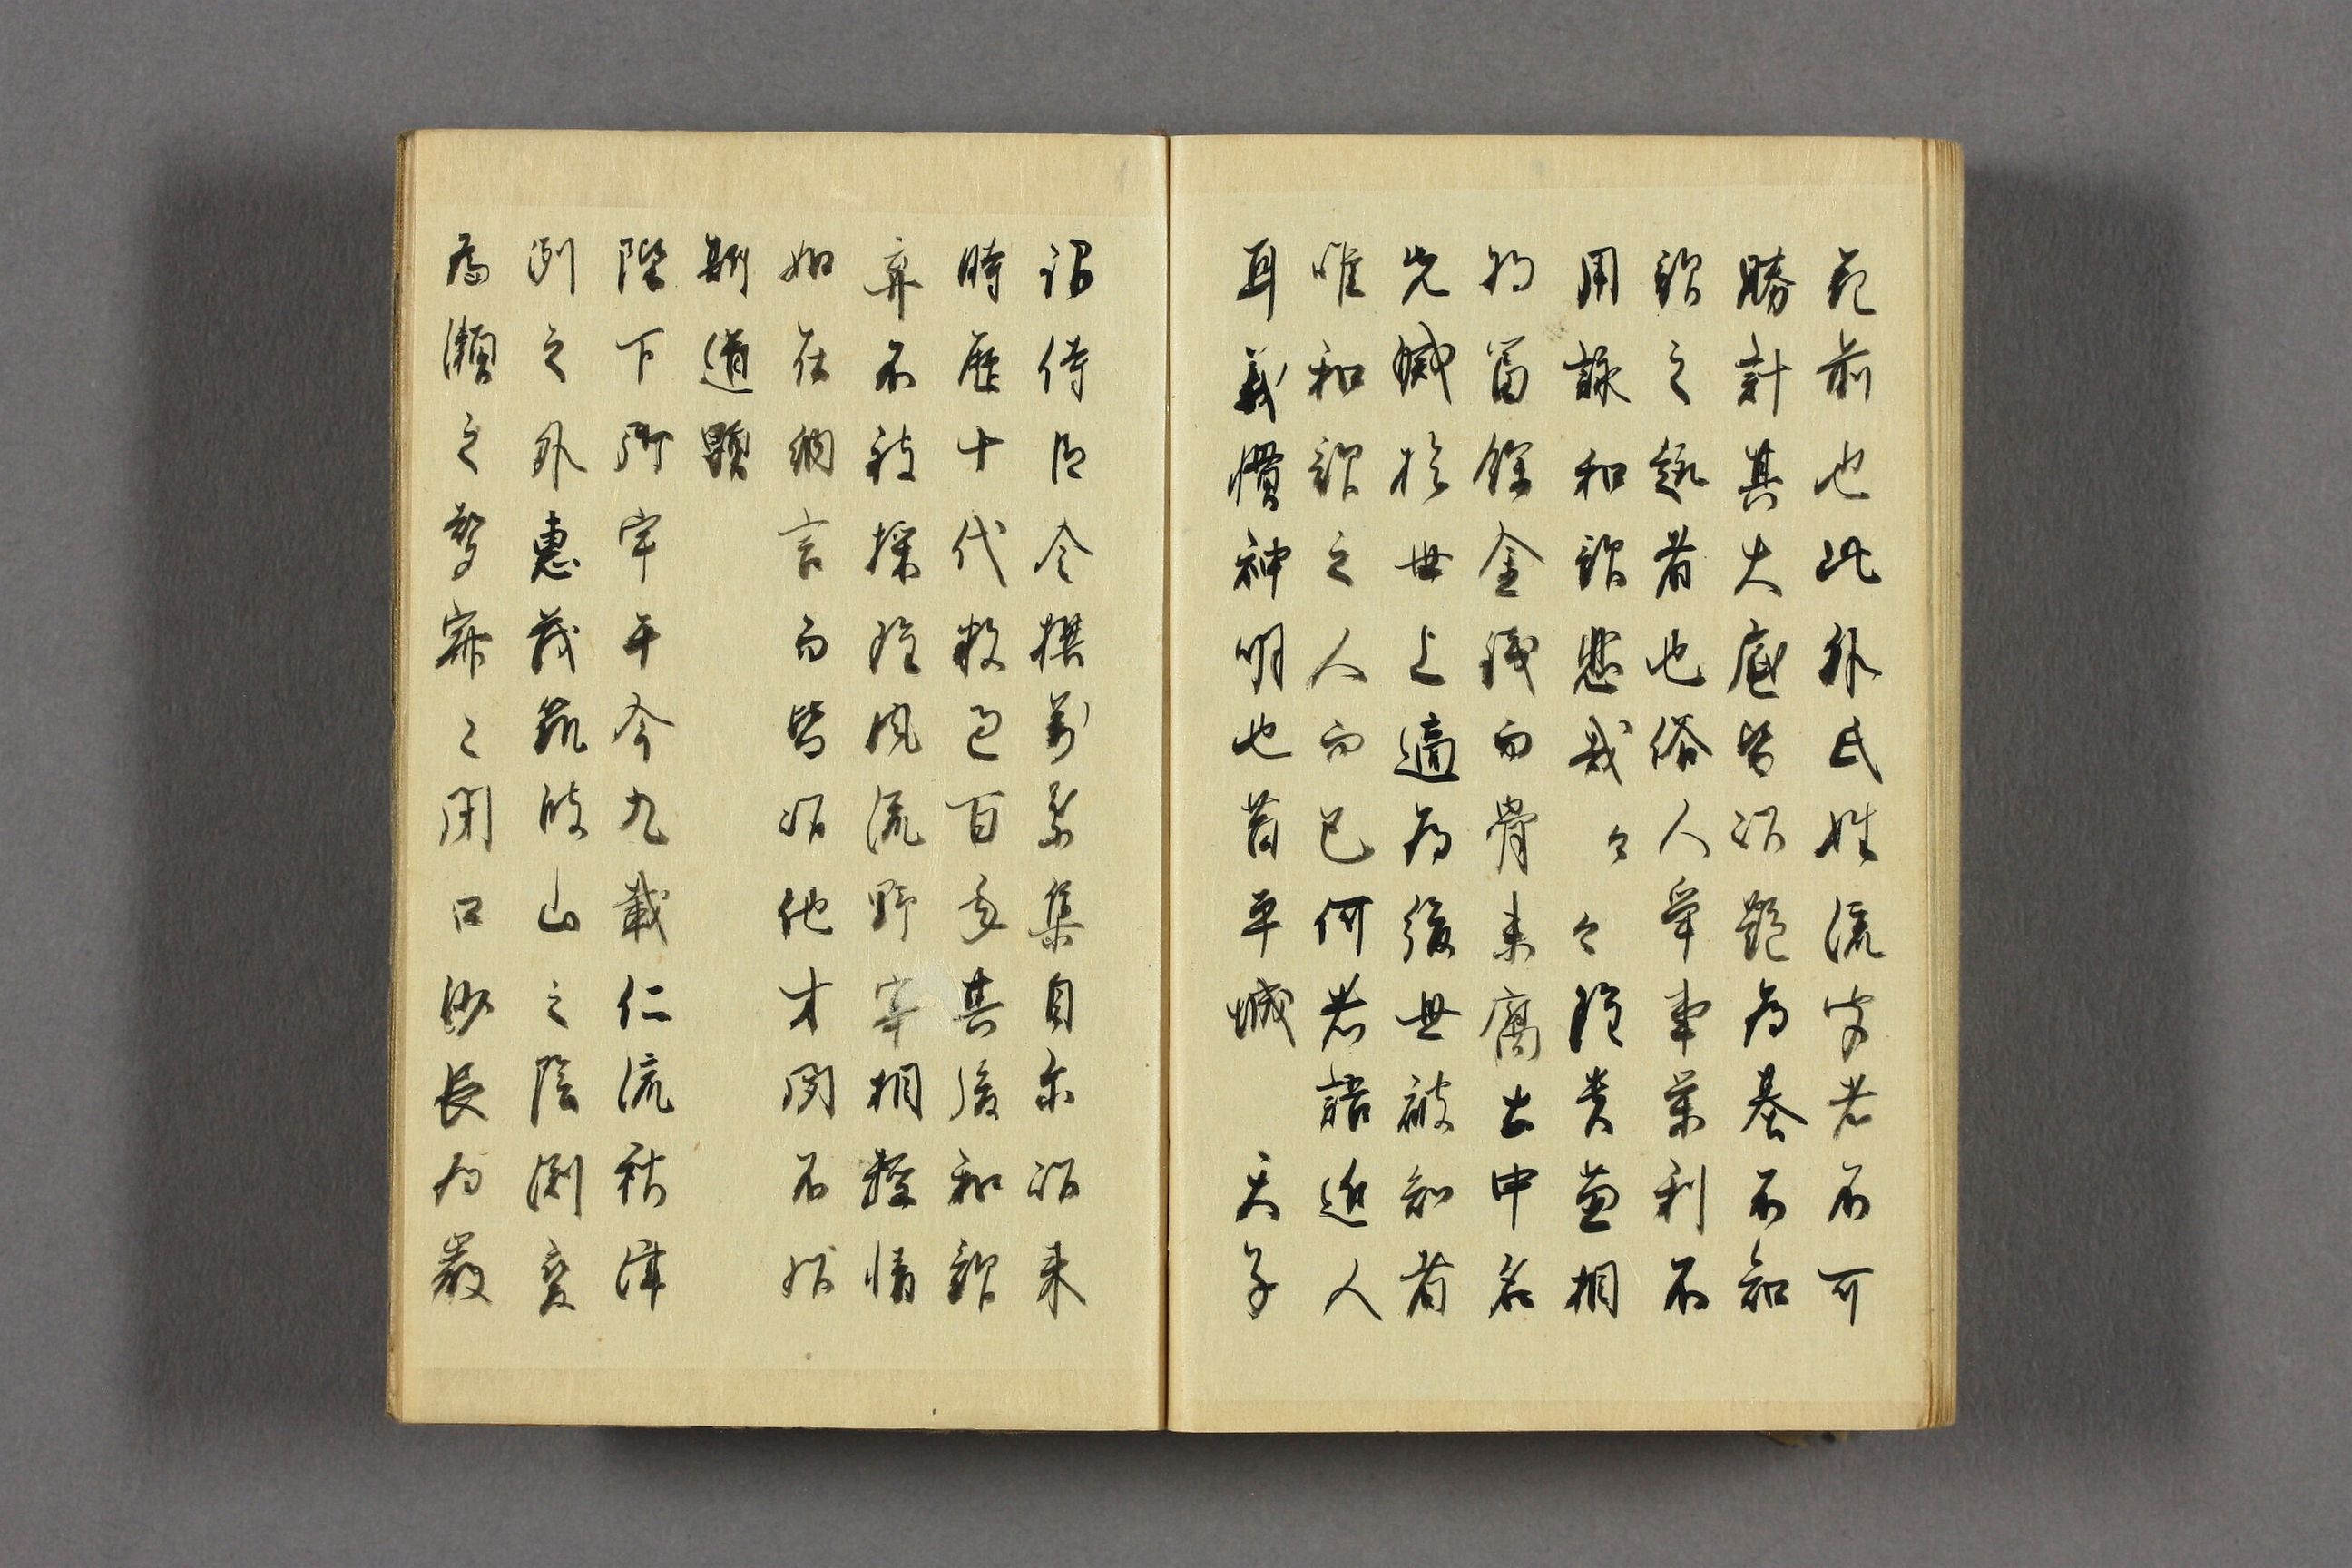 花前也此外氏姓流聞者不可
勝計其大底皆以艶為基不知
謌之趣者也俗人争事榮利不
用詠和謌悲哉々々雖貴兼相
将富餘金錢而骨未腐土中名
先滅於世上適為後世被知者
唯和謌之人而已何者語近人
耳義慣神明也昔平城 天子
詔侍臣令撰萬葉集自尓以来
時歴十代数過百年其後和謌
弃不被採雖風流野宰相軽情
如在納言而皆以他才聞不以
斯道顕
陛下御宇于今九載仁流秋津
洲之外惠茂筑波山之陰淵変
為瀬之聲寂々閇口沙長為巌